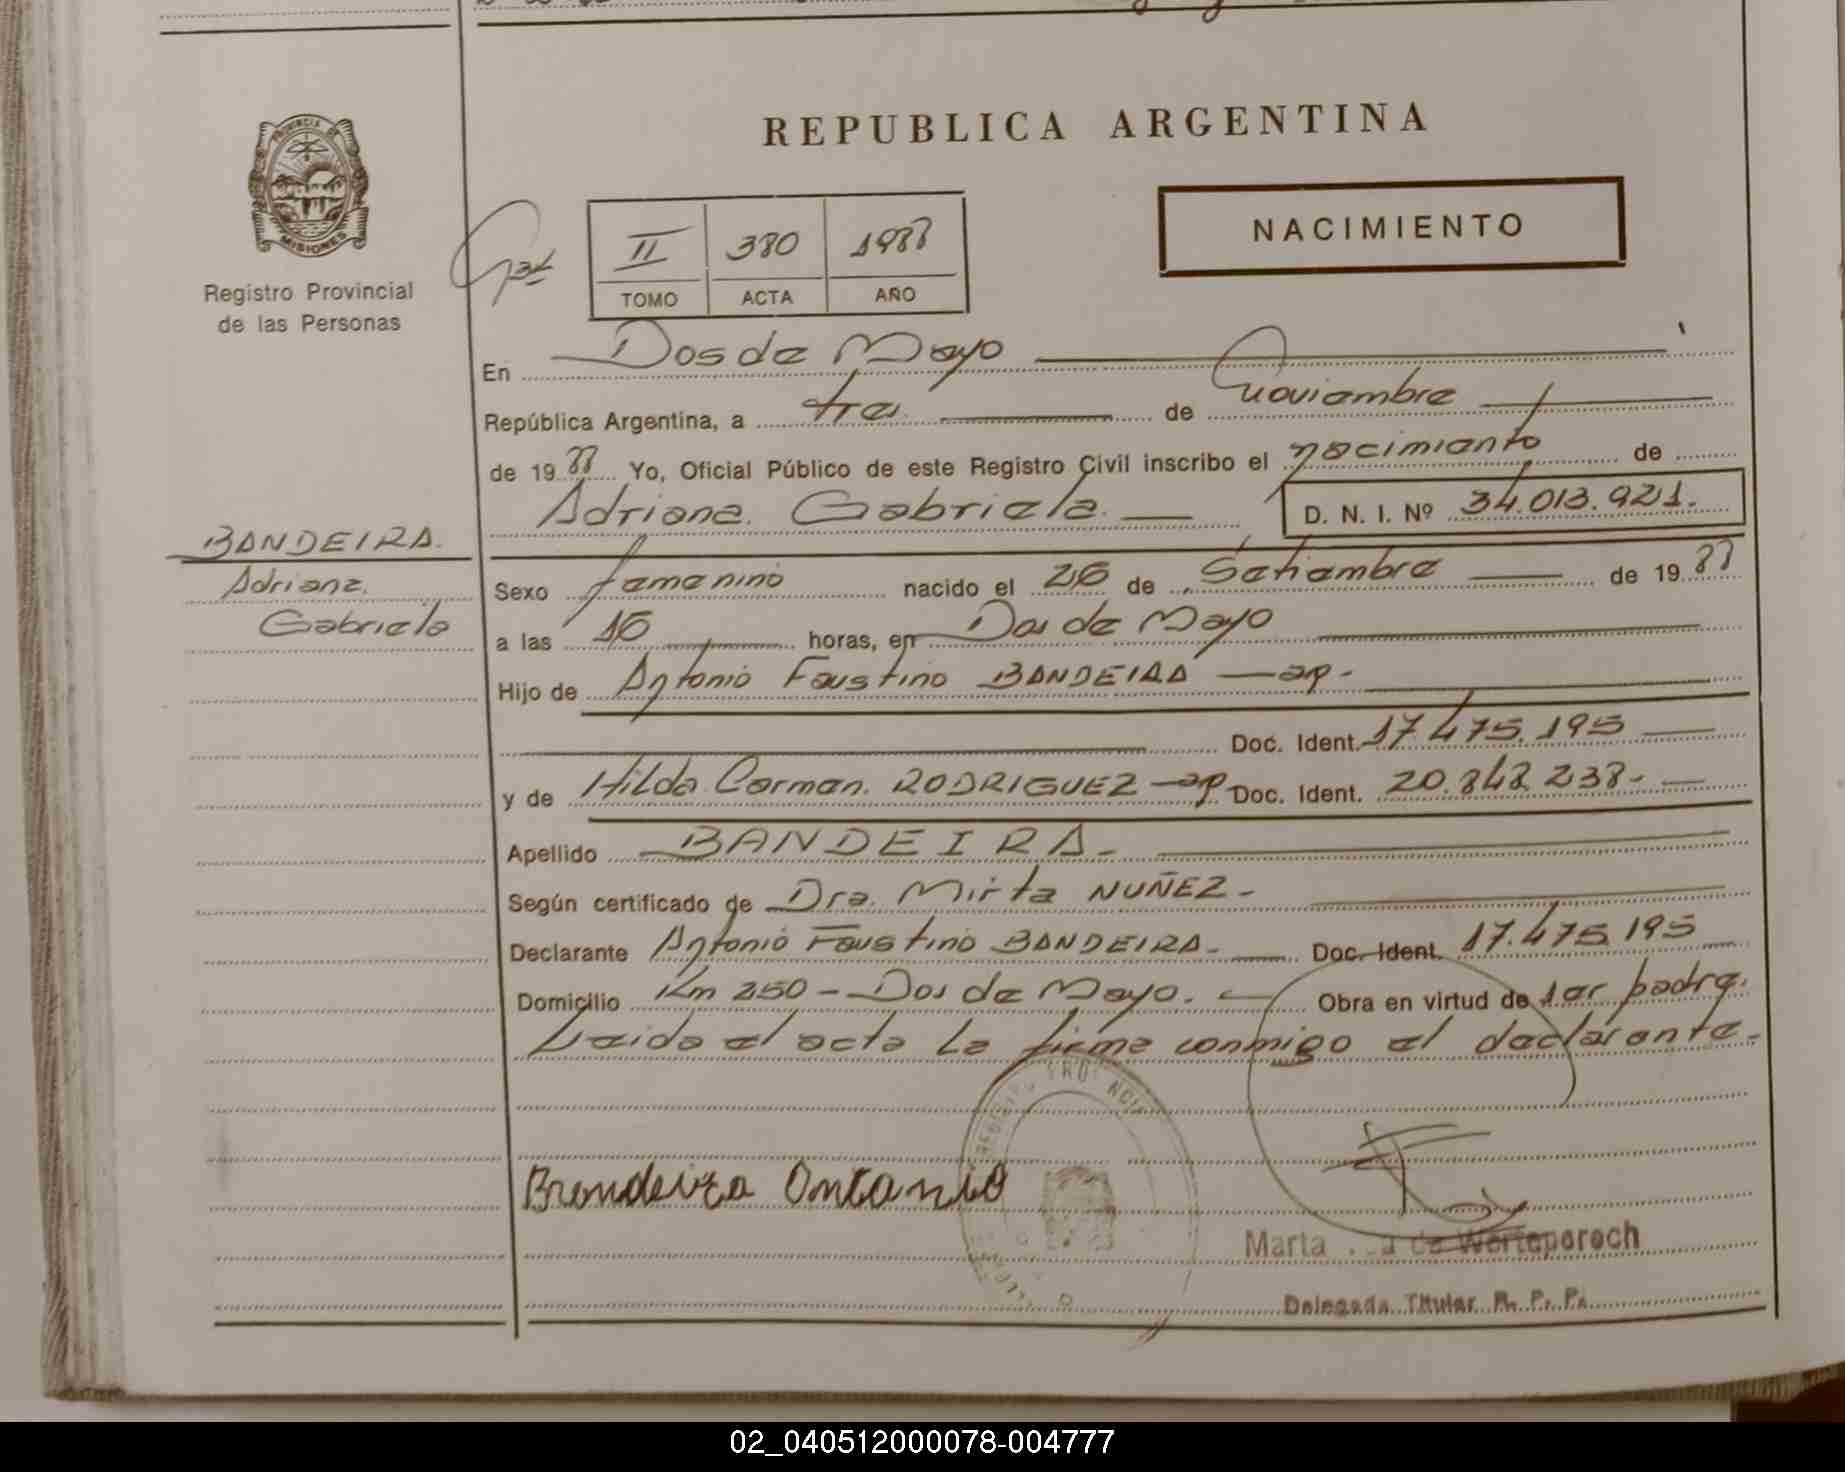 REPUBLICA ARGENTINA
PROVINCIA DE
MISIONES
Registro Provincial
de las Personas
NACIMIENTO
II 380 1988
TOMO ACTA AÑO
En Dos de Mayo
República Argentina, a tres de noviembre
de 1988 Yo, Oficial Público de este Registro Civil inscribo el nacimiento de
Adriana Gabriela D. N. I. Nº 34.013.921.
BANDEIRA.
Adriana
Gabriela
Sexo femenino nacido el 26 de Setiembre de 1988
a las 16 horas, en Dos de Mayo
Hijo de Antonio Faustino BANDEIRA — ap.-
Doc. Ident. 17.475.195
y de Hilda Carmen RODRIGUEZ — ap. Doc. Ident. 20.848.238-
Apellido BANDEIRA-
Según certificado de Dra. Mirta NUÑEZ-
Declarante Antonio Faustino BANDEIRA- Doc. Ident. 17.475.195
Domicilio Km 250 - Dos de Mayo. Obra en virtud de ser padre.
Leida el acta la firma conmigo el declarante.-
Brandeira Ontanio
Marta de Werteperoch
Delegada Titular R. P. P.
02_040512000078-004777